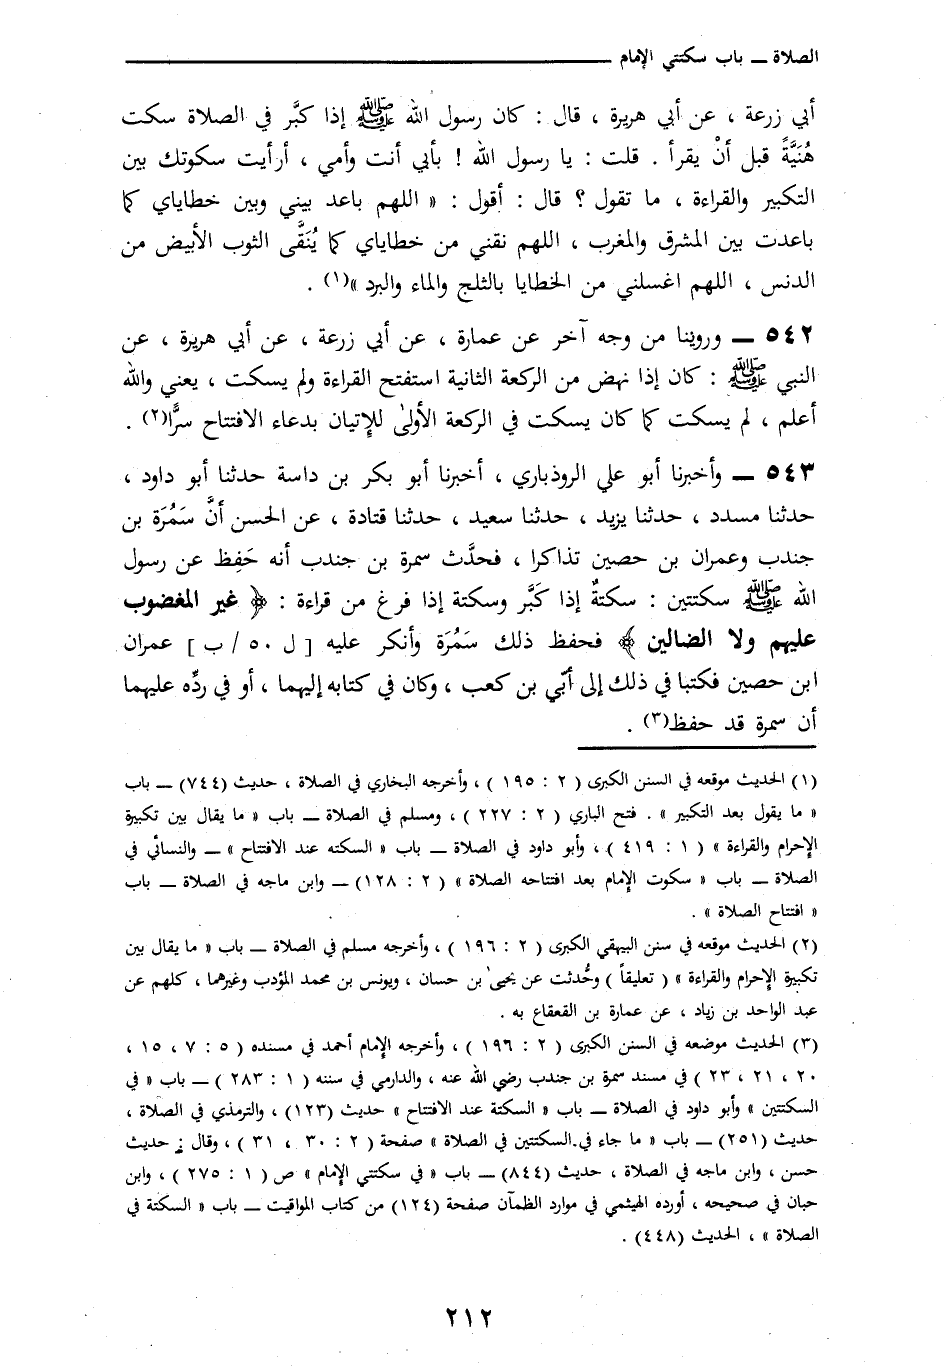 الصلاة ــ باب سكتتي الإمام
أبي زرعة ، عن أبي هريرة ، قال : كان رسول الله ﷺ إذا كبَّر في الصلاة سكت
هُنَيَّةً قبل أنْ يقرأ . قلت : يا رسول الله ! بأبي أنت وأمي ، أرأيت سكوتك بين
التكبير والقراءة ، ما تقول ؟ قال : أقول : « اللهم باعد بيني وبين خطاياي كما
باعدت بين المشرق والمغرب ، اللهم نقني من خطاياي كما يُنَقَّى الثوب الأبيض من
الدنس ، اللهم اغسلني من الخطايا بالثلج والماء والبرد »(١) .
٥٤٢ ــ وروينا من وجه آخر عن عمارة ، عن أبي زرعة ، عن أبي هريرة ، عن
النبي ﷺ : كان إذا نهض من الركعة الثانية استفتح القراءة ولم يسكت ، يعني والله
أعلم ، لم يسكت كما كان يسكت في الركعة الأولىٰ للإتيان بدعاء الافتتاح سرًّا(٢) .
٥٤٣ ــ وأخبرنا أبو علي الروذباري ، أخبرنا أبو بكر بن داسة حدثنا أبو داود ،
حدثنا مسدد ، حدثنا يزيد ، حدثنا سعيد ، حدثنا قتادة ، عن الحسن أنَّ سَمُرَة بن
جندب وعمران بن حصين تذاكرا ، فحدَّث سمرة بن جندب أنه حَفِظ عن رسول
الله ﷺ سكتتين : سكتةٌ إذا كَبَّر وسكتة إذا فرغ من قراءة : ﴿ غير المغضوب
عليهم ولا الضالين ﴾ فحفظ ذلك سَمُرَة وأنكر عليه [ ل ٥٠ / ب ] عمران
ابن حصين فكتبا في ذلك إلى أبّي بن كعب ، وكان في كتابه إليهما ، أو في ردِّه عليهما
أن سمرة قد حفظ(٣) .
(١) الحديث موقعه في السنن الكبرى ( ٢ : ١٩٥ ) ، وأخرجه البخاري في الصلاة ، حديث (٧٤٤) ــ باب
« ما يقول بعد التكبير » . فتح الباري ( ٢ : ٢٢٧ ) ، ومسلم في الصلاة ــ باب « ما يقال بين تكبيرة
الإحرام والقراءة » ( ١ : ٤١٩ ) ، وأبو داود في الصلاة ــ باب « السكته عند الافتتاح » ــ والنسائي في
الصلاة ــ باب « سكوت الإمام بعد افتتاحه الصلاة » ( ٢ : ١٢٨) ــ وابن ماجه في الصلاة ــ باب
« افتتاح الصلاة » .
(٢) الحديث موقعه في سنن البيهقي الكبرى ( ٢ : ١٩٦ ) ، وأخرجه مسلم في الصلاة ــ باب « ما يقال بين
تكبيرة الإحرام والقراءة » ( تعليقاً ) وحُدثت عن يحيىٰ بن حسان ، ويونس بن محمد المؤدب وغيرهما ، كلهم عن
عبد الواحد بن زياد ، عن عمارة بن القعقاع به .
(٣) الحديث موضعه في السنن الكبرى ( ٢ : ١٩٦ ) ، وأخرجه الإمام أحمد في مسنده ( ٥ : ٧ ، ١٥ ،
٢٠ ، ٢١ ، ٢٣ ) في مسند سمرة بن جندب رضي الله عنه ، والدارمي في سننه ( ١ : ٢٨٣ ) ــ باب « في
السكتتين » وأبو داود في الصلاة ــ باب « السكتة عند الافتتاح » حديث (١٢٣) ، والترمذي في الصلاة ،
حديث (٢٥١) ــ باب « ما جاء في السكتتين في الصلاة » صفحة ( ٢ : ٣٠ ، ٣١ ) ، وقال : حديث
حسن ، وابن ماجه في الصلاة ، حديث (٨٤٤) ــ باب « في سكتتي الإمام » ص ( ١ : ٢٧٥ ) ، وابن
حبان في صحيحه ، أورده الهيثمي في موارد الظمآن صفحة (١٢٤) من كتاب المواقيت ــ باب « السكتة في
الصلاة » ، الحديث (٤٤٨) .
٢١٢